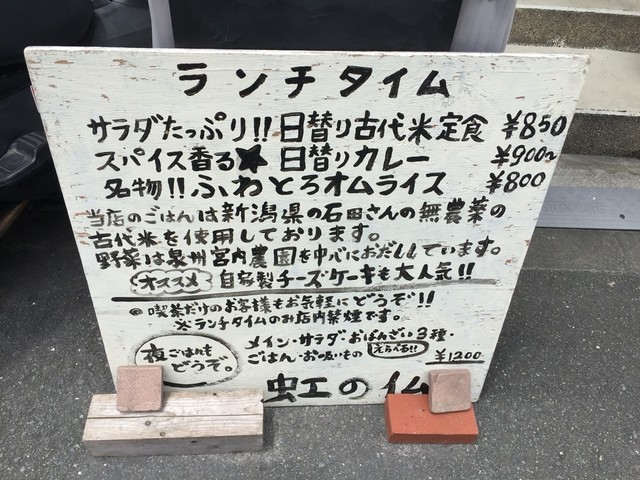 ランチタイム
サラダたっぷり!!日替り古代米定食 ¥850
スパイス香る★日替りカレー ¥900~
名物!!ふわとろオムライス ¥800
当店のごはんは新潟県の石田さんの無農薬の
古代米を使用しております。
野菜は泉州宮内農園を中心におだししています。
オススメ 自家製チーズケーキも大人気!!
◎喫茶だけのお客様もお気軽にどうぞ!!
※ランチタイムのみ店内禁煙です。
夜ごはんも
どうぞ。
メイン・サラダ・おばんざい3種・
ごはん・お吸いもの えらべる!! ¥1200
虹の仏